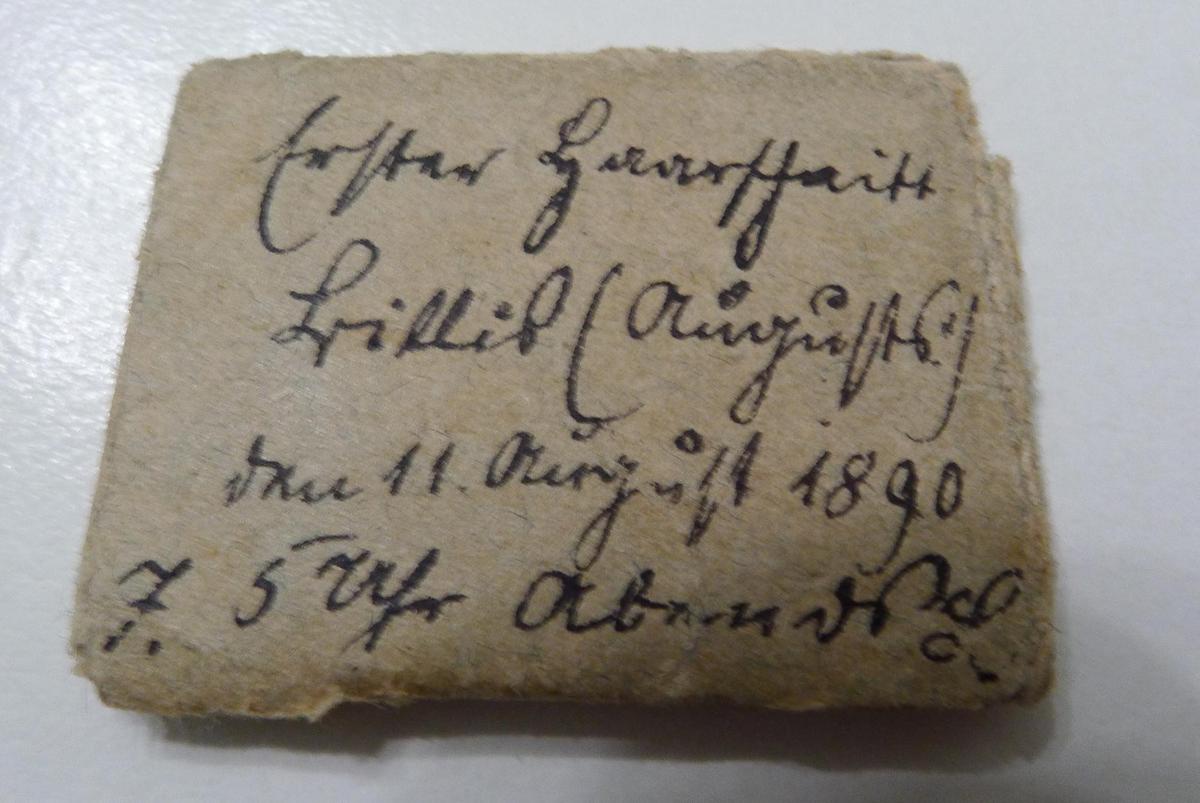 Erster Haarschnitt
(Augusts)
den 11. August 1890
5 Uhr Abends